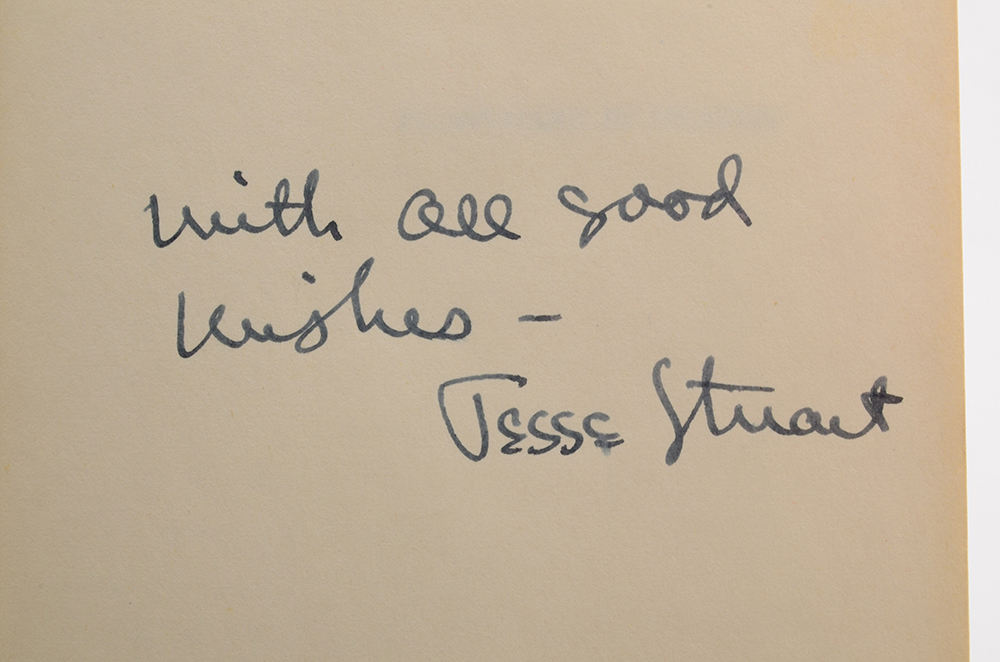 With all good
Wishes –
Jesse Stuart